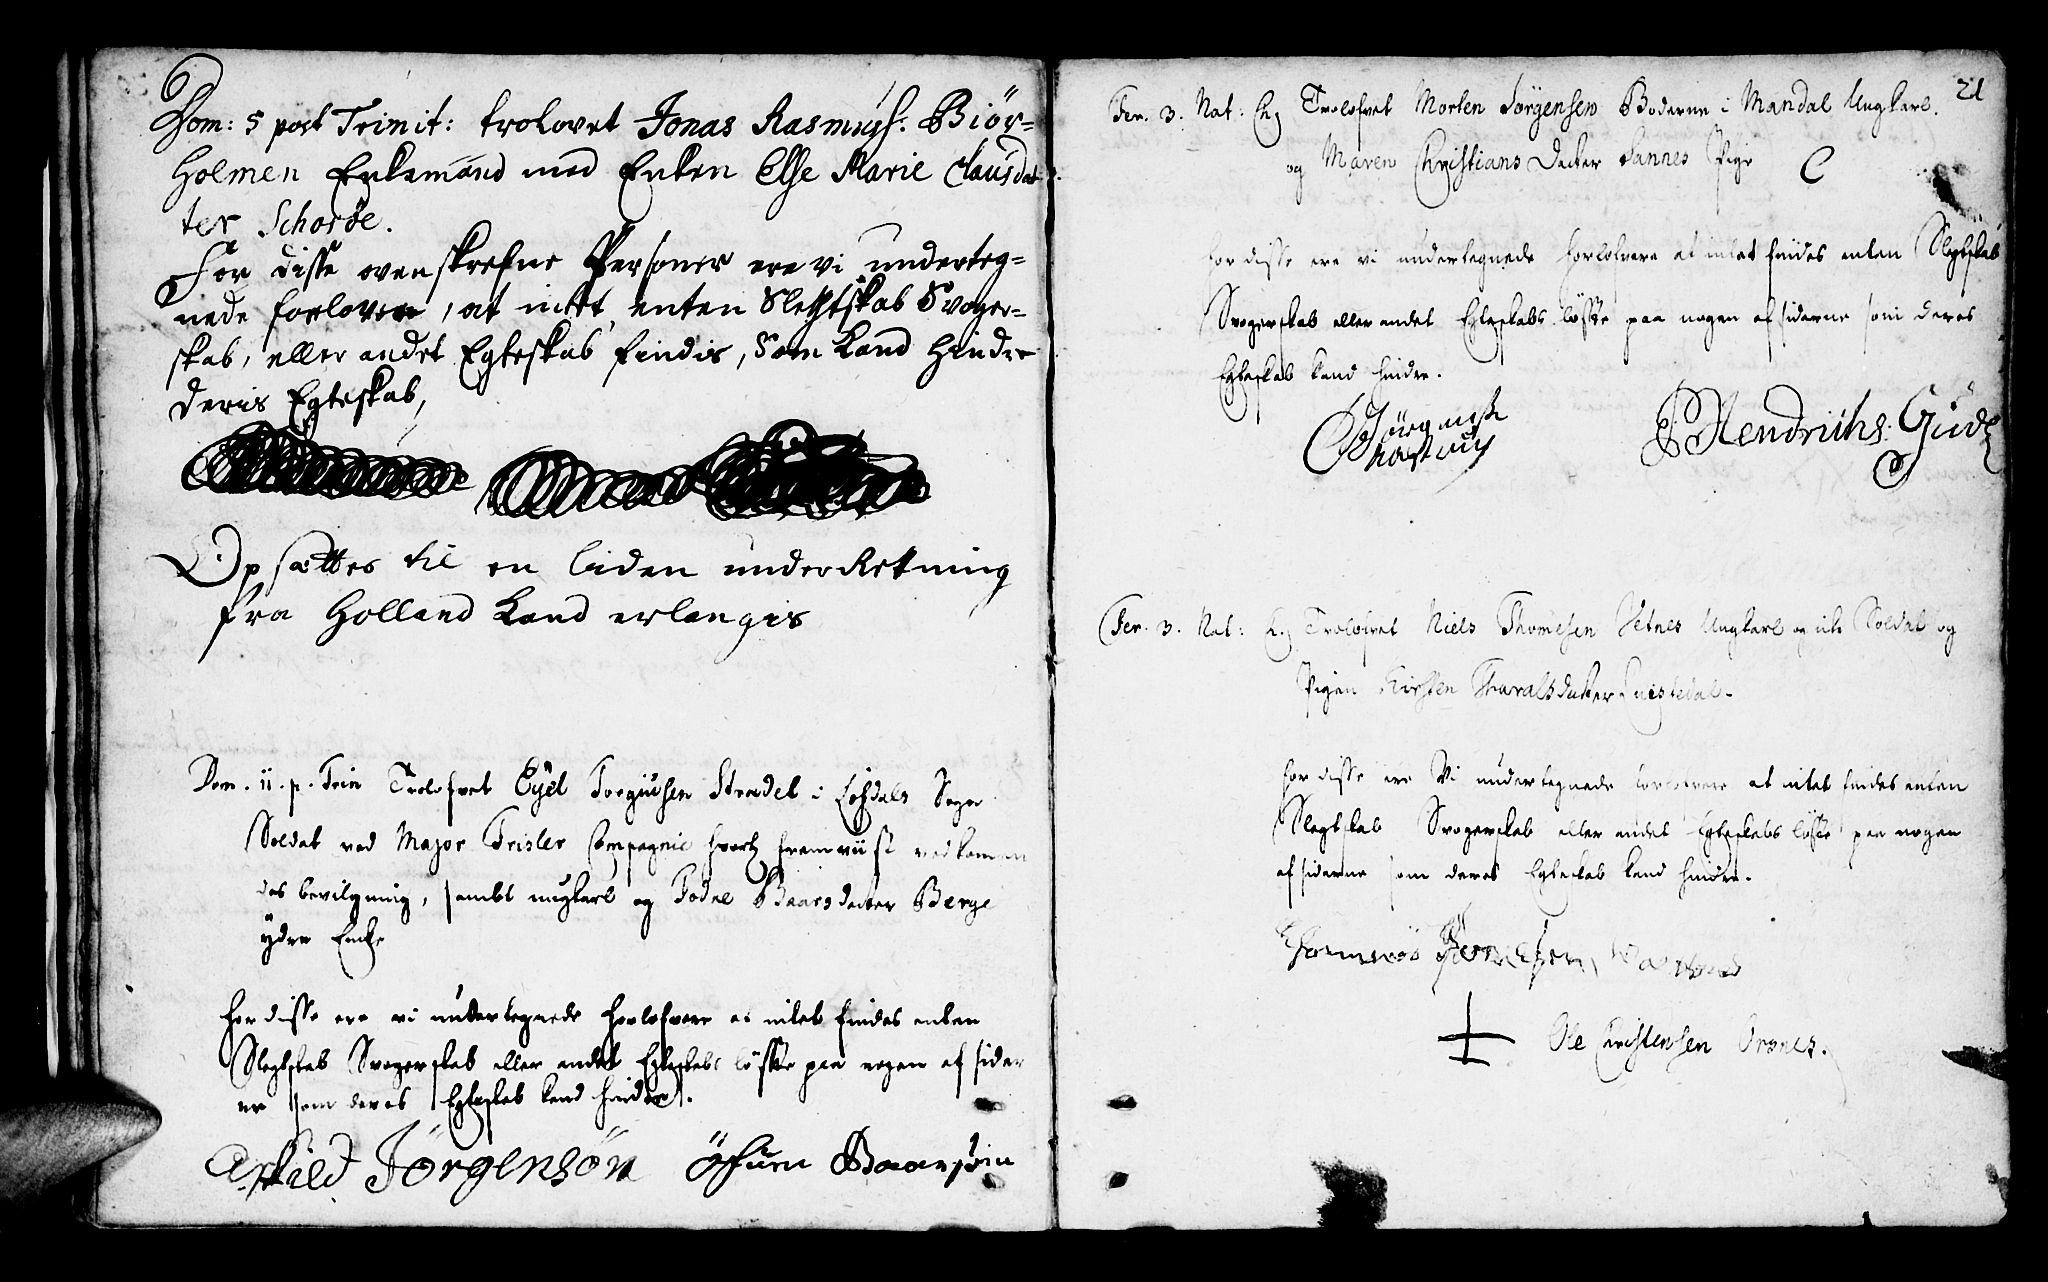 Dom: 5 post Trinit: trolovet Jonas Rasmusf: Biör=
Holmen Enkemand med Enken Else Marie Clausdat
ter Scharöe.
For disse ovenskrefne Personer ere vi underteg=
nede forlovere, at intet enten Slegtskab Svoger=
skab, eller andet Egteskab findis, Som Kand Hindre
deris Egteskab,
Opsættes til en liden underRetning
fra Holland Kand erlangis
Dom. 11. p. Trin Trolofvet Eyel Torgiusen Strædet i Sogn
Soldat ved Major Frisler Compagnie fremviist vedkomen
des bevilgning, sambt ungkarl og Todne Baarsdatter Berge
ydre Enke
for disse ere vi undertegnede forlofvere at intet findes enten
Slegtskab Svogerskab eller andet Egteskabs løffte paa nogen af sider
ne som deres Egteskab kand hindre.
Askild Jörgensön Baarsøn
21
Fer. 3. Nat: Trolofvet Morten Jörgensen Boderne i Mandal Ungkarl.
og Maren Christians Datter Sannes Pige
C
for disse ere vi undertegnede forlofvere at intet findes enten Slegtskab
Svogerskab eller andet Egteskabs løffte paa nogen af siderne som deres
Egteskab kand hindre.
Hendrichs: Gude
Fer. 3. Nat: Trolofvet Niels Thomesen Vetnes Ungkarl og Soldat og
Pigen Kirsten Tharalsdatter
for disse ere Vi undertegnede forlofvere at intet findes enten
Slegtskab Svogerskab eller andet Egteskabs løffte paa nogen
af siderne som deres Egteskab kand hindre.
Ole Christensen Orsnes.